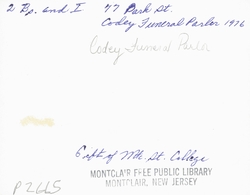 2 Bp. and I
77 Park St.
Codey Funeral Parlor 1976
Codey Funeral Parlor
Gift of Mt. St. College
MONTCLAIR FREE PUBLIC LIBRARY
MONTCLAIR, NEW JERSEY
P2665